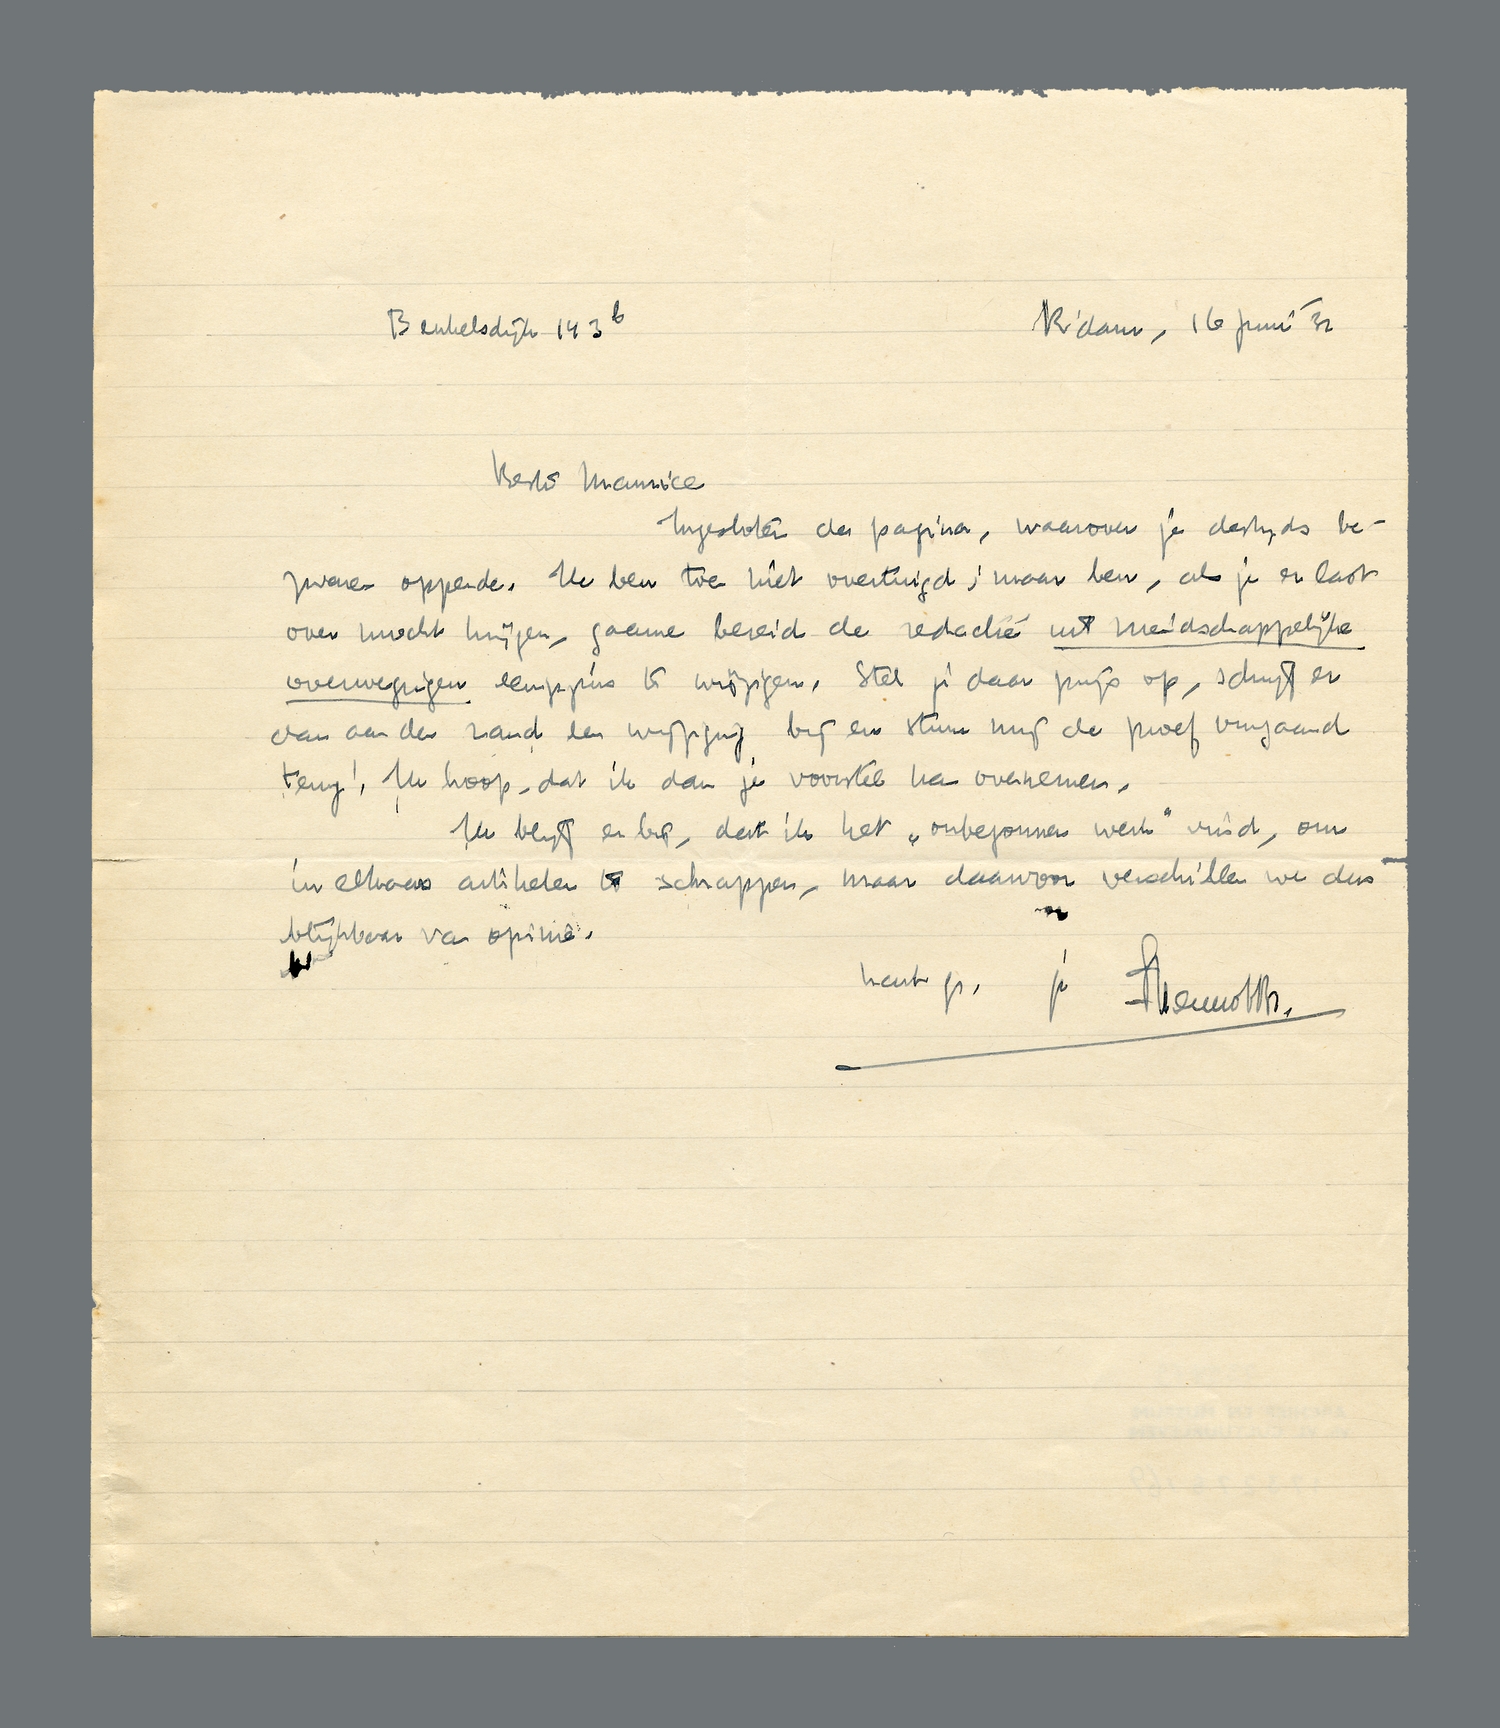 Beukelsdijk 143b
R'dam, 16 Juni '32
Beste Maurice
Ingesloten de pagina, waarover je destijds be-
zwaren opperde. Ik ben toe niet overtuigd; maar ben, als je er last
over mocht krijgen, gaarne bereid de redactie uit vriendschappelijke
overwegingen eenigszins te wijzigen. Stel je daar prijs op, schrijf er
dan aan den rand een wijziging bij en stuur mij de proef omgaand
terug! Ik hoop, dat ik dan je voorstel kan overnemen.
Ik blijf er bij, dat ik het „onbegonnen werk" vind, om
in elkaars artikelen te schrappen, maar daarvoor verschillen we dus
blijkbaar van opinie.
hart. gr. je